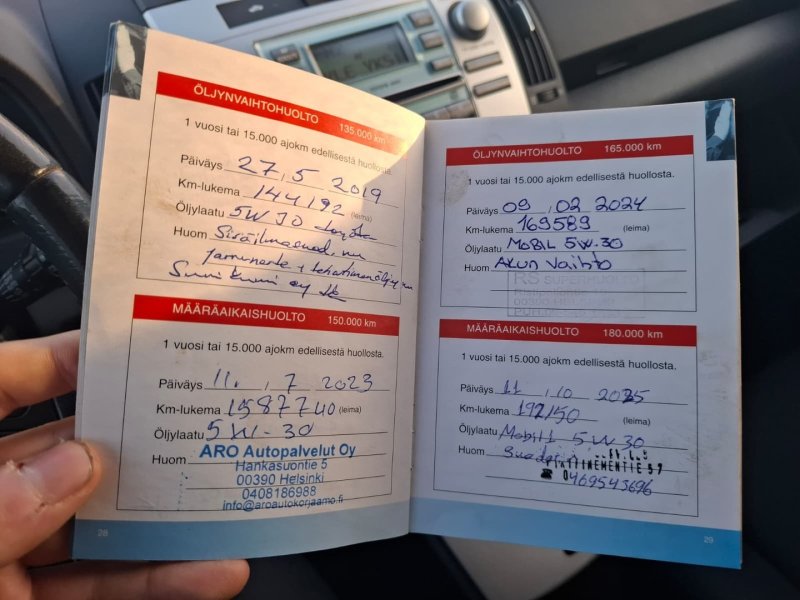 ÖLJYNVAIHTOHUOLTO 135.000 km
1 vuosi tai 15.000 ajokm edellisestä huollosta.
Päiväys 27,5 2019
Km-lukema 144192
Öljylaatu 5W30 toyota (leima)
Huom
MÄÄRÄAIKAISHUOLTO 150.000 km
1 vuosi tai 15.000 ajokm edellisestä huollosta.
Päiväys 11. , 7 2023
Km-lukema 1587740 (leima)
Öljylaatu 5W-30
Huom ARO Autopalvelut Oy
Hankasuontie 5
00390 Helsinki
0408186988
info@aroautokorjaamo.fi
28
ÖLJYNVAIHTOHUOLTO 165.000 km
1 vuosi tai 15.000 ajokm edellisestä huollosta.
Päiväys 09 , 02 2024
Km-lukema 169589
Öljylaatu MOBIL 5W-30 (leima)
Huom AKUN Vaihto
RS SUPERHUOLTO
MÄÄRÄAIKAISHUOLTO 180.000 km
1 vuosi tai 15.000 ajokm edellisestä huollosta.
Päiväys 11 , 10 2025
Km-lukema 192150 (leima)
Öljylaatu Mobil1 5W30
Huom
0469543696
29